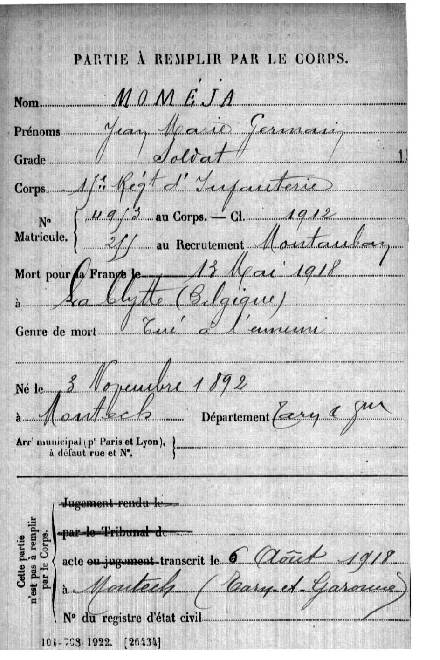 PARTIE À REMPLIR PAR LE CORPS.
Nom MOMÉJA
Prénoms Jean Marie Germain
Grade Soldat
Corps Régt d'Infanterie
Nº Matricule. { 4953 au Corps. — Cl. 1912
255 au Recrutement Montauban
Mort pour la France le 13 Mai 1918
à La Clytte (Belgique)
Genre de mort Tué à l'ennemi
Né le 3 Novembre 1892
à Montech Département Tarn & Gne
Arrt municipal (pr Paris et Lyon),
à défaut rue et Nº.
Cette partie n'est pas à remplir par le Corps.
Jugement rendu le
par le Tribunal de
acte ou jugement transcrit le 6 Août 1918
à Montech (Tarn-et-Garonne)
Nº du registre d'état civil
101-708-1922. [26434]